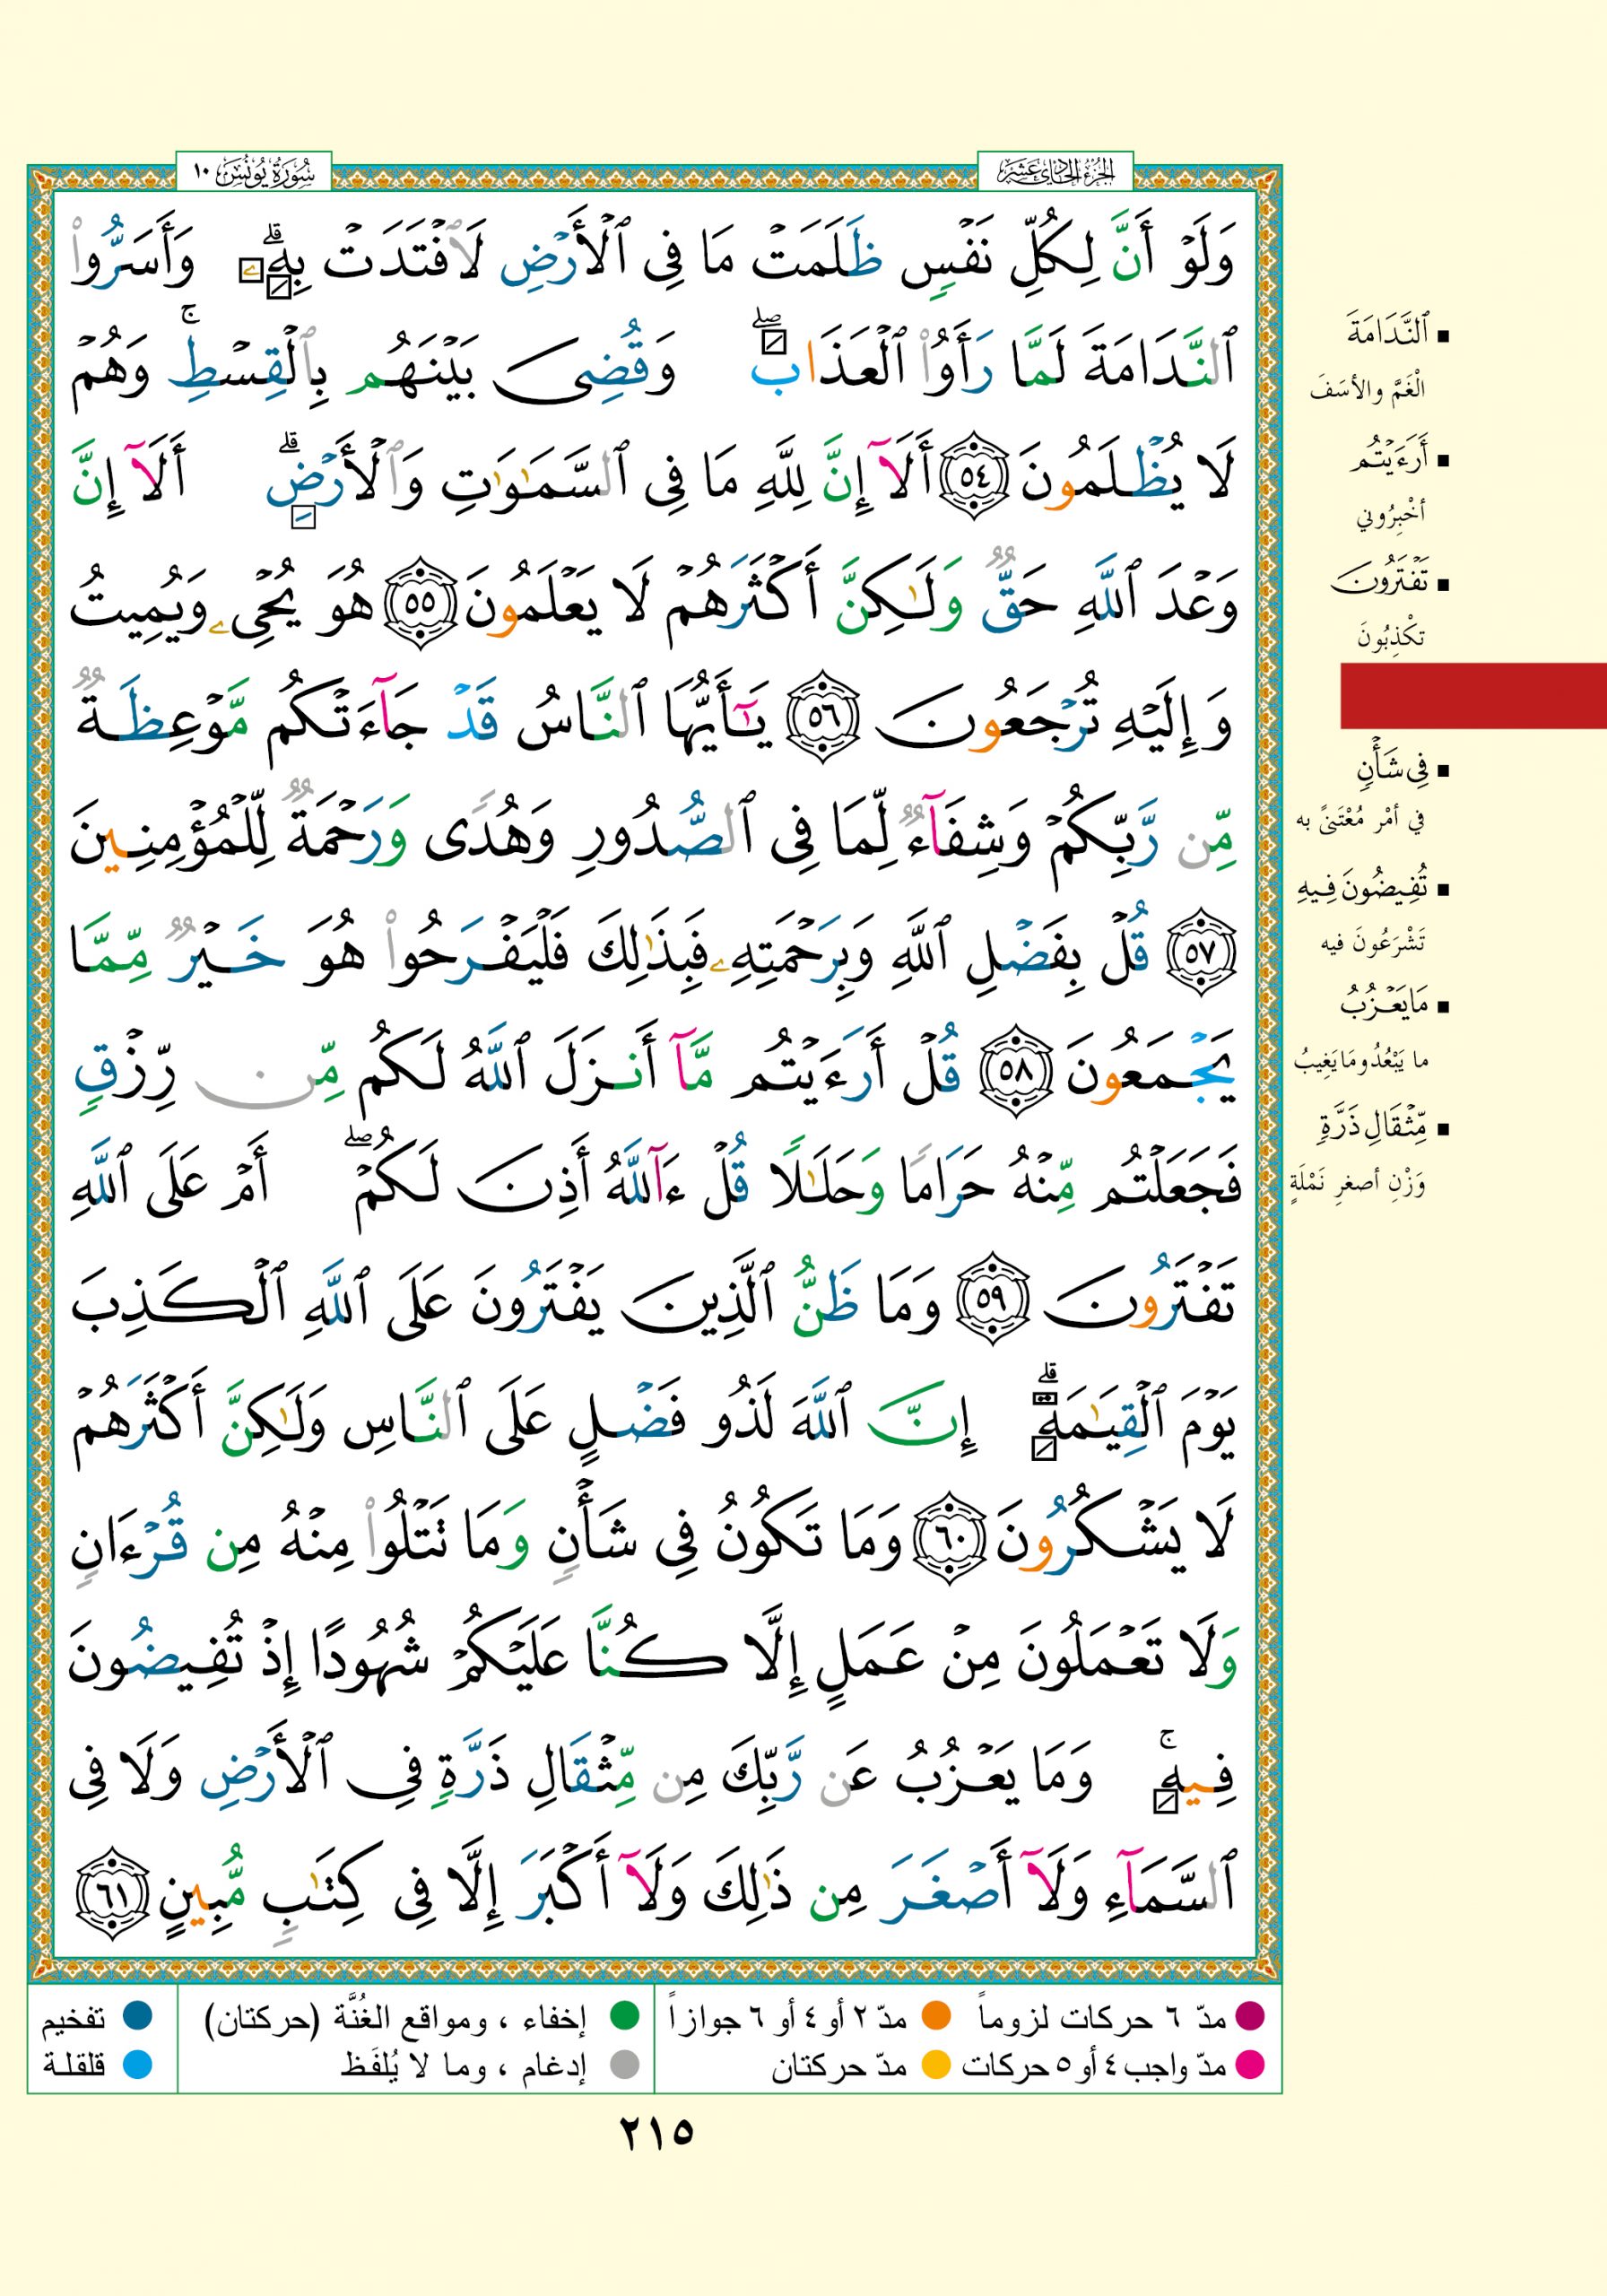 الجزء الحادي عشر
سورة يونس ١٠
وَلَوۡ أَنَّ لِكُلِّ نَفۡسٖ ظَلَمَتۡ مَا فِي ٱلۡأَرۡضِ لَٱفۡتَدَتۡ بِهِۦۗ وَأَسَرُّواْ
ٱلنَّدَامَةَ لَمَّا رَأَوُاْ ٱلۡعَذَابَۖ وَقُضِيَ بَيۡنَهُم بِٱلۡقِسۡطِۚ وَهُمۡ
لَا يُظۡلَمُونَ ٥٤ أَلَآ إِنَّ لِلَّهِ مَا فِي ٱلسَّمَٰوَٰتِ وَٱلۡأَرۡضِۗ أَلَآ إِنَّ
وَعۡدَ ٱللَّهِ حَقّٞ وَلَٰكِنَّ أَكۡثَرَهُمۡ لَا يَعۡلَمُونَ ٥٥ هُوَ يُحۡيِۦ وَيُمِيتُ
وَإِلَيۡهِ تُرۡجَعُونَ ٥٦ يَٰٓأَيُّهَا ٱلنَّاسُ قَدۡ جَآءَتۡكُم مَّوۡعِظَةٞ
مِّن رَّبِّكُمۡ وَشِفَآءٞ لِّمَا فِي ٱلصُّدُورِ وَهُدٗى وَرَحۡمَةٞ لِّلۡمُؤۡمِنِينَ
٥٧ قُلۡ بِفَضۡلِ ٱللَّهِ وَبِرَحۡمَتِهِۦ فَبِذَٰلِكَ فَلۡيَفۡرَحُواْ هُوَ خَيۡرٞ مِّمَّا
يَجۡمَعُونَ ٥٨ قُلۡ أَرَءَيۡتُم مَّآ أَنزَلَ ٱللَّهُ لَكُم مِّن رِّزۡقٖ
فَجَعَلۡتُم مِّنۡهُ حَرَامٗا وَحَلَٰلٗا قُلۡ ءَآللَّهُ أَذِنَ لَكُمۡۖ أَمۡ عَلَى ٱللَّهِ
تَفۡتَرُونَ ٥٩ وَمَا ظَنُّ ٱلَّذِينَ يَفۡتَرُونَ عَلَى ٱللَّهِ ٱلۡكَذِبَ
يَوۡمَ ٱلۡقِيَٰمَةِۗ إِنَّ ٱللَّهَ لَذُو فَضۡلٍ عَلَى ٱلنَّاسِ وَلَٰكِنَّ أَكۡثَرَهُمۡ
لَا يَشۡكُرُونَ ٦٠ وَمَا تَكُونُ فِي شَأۡنٖ وَمَا تَتۡلُواْ مِنۡهُ مِن قُرۡءَانٖ
وَلَا تَعۡمَلُونَ مِنۡ عَمَلٍ إِلَّا كُنَّا عَلَيۡكُمۡ شُهُودًا إِذۡ تُفِيضُونَ
فِيهِۚ وَمَا يَعۡزُبُ عَن رَّبِّكَ مِن مِّثۡقَالِ ذَرَّةٖ فِي ٱلۡأَرۡضِ وَلَا فِي
ٱلسَّمَآءِ وَلَآ أَصۡغَرَ مِن ذَٰلِكَ وَلَآ أَكۡبَرَ إِلَّا فِي كِتَٰبٖ مُّبِينٍ ٦١
▪ ٱلنَّدَامَةَ
الْغَمَّ والأسَفَ
▪ أَرَءَيۡتُم
أخْبِرُوني
▪ تَفۡتَرُونَ
تكْذِبُونَ
▪ فِي شَأۡنٖ
في أمْر مُعْتَنىً به
▪ تُفِيضُونَ فِيهِ
تَشْرَعُونَ فيه
▪ مَا يَعۡزُبُ
ما يَبْعُدُ ومَا يَغِيبُ
▪ مِّثۡقَالِ ذَرَّةٖ
وَزْنِ أصغرِ نَمْلَةٍ
مدّ ٦ حركات لزوماً مدّ ٢ أو ٤ أو ٦ جوازاً إخفاء ، ومواقع الغُنَّة (حركتان) تفخيم
مدّ واجب ٤ أو ٥ حركات مدّ حركتان إدغام ، وما لا يُلفَظ قلقلة
٢١٥